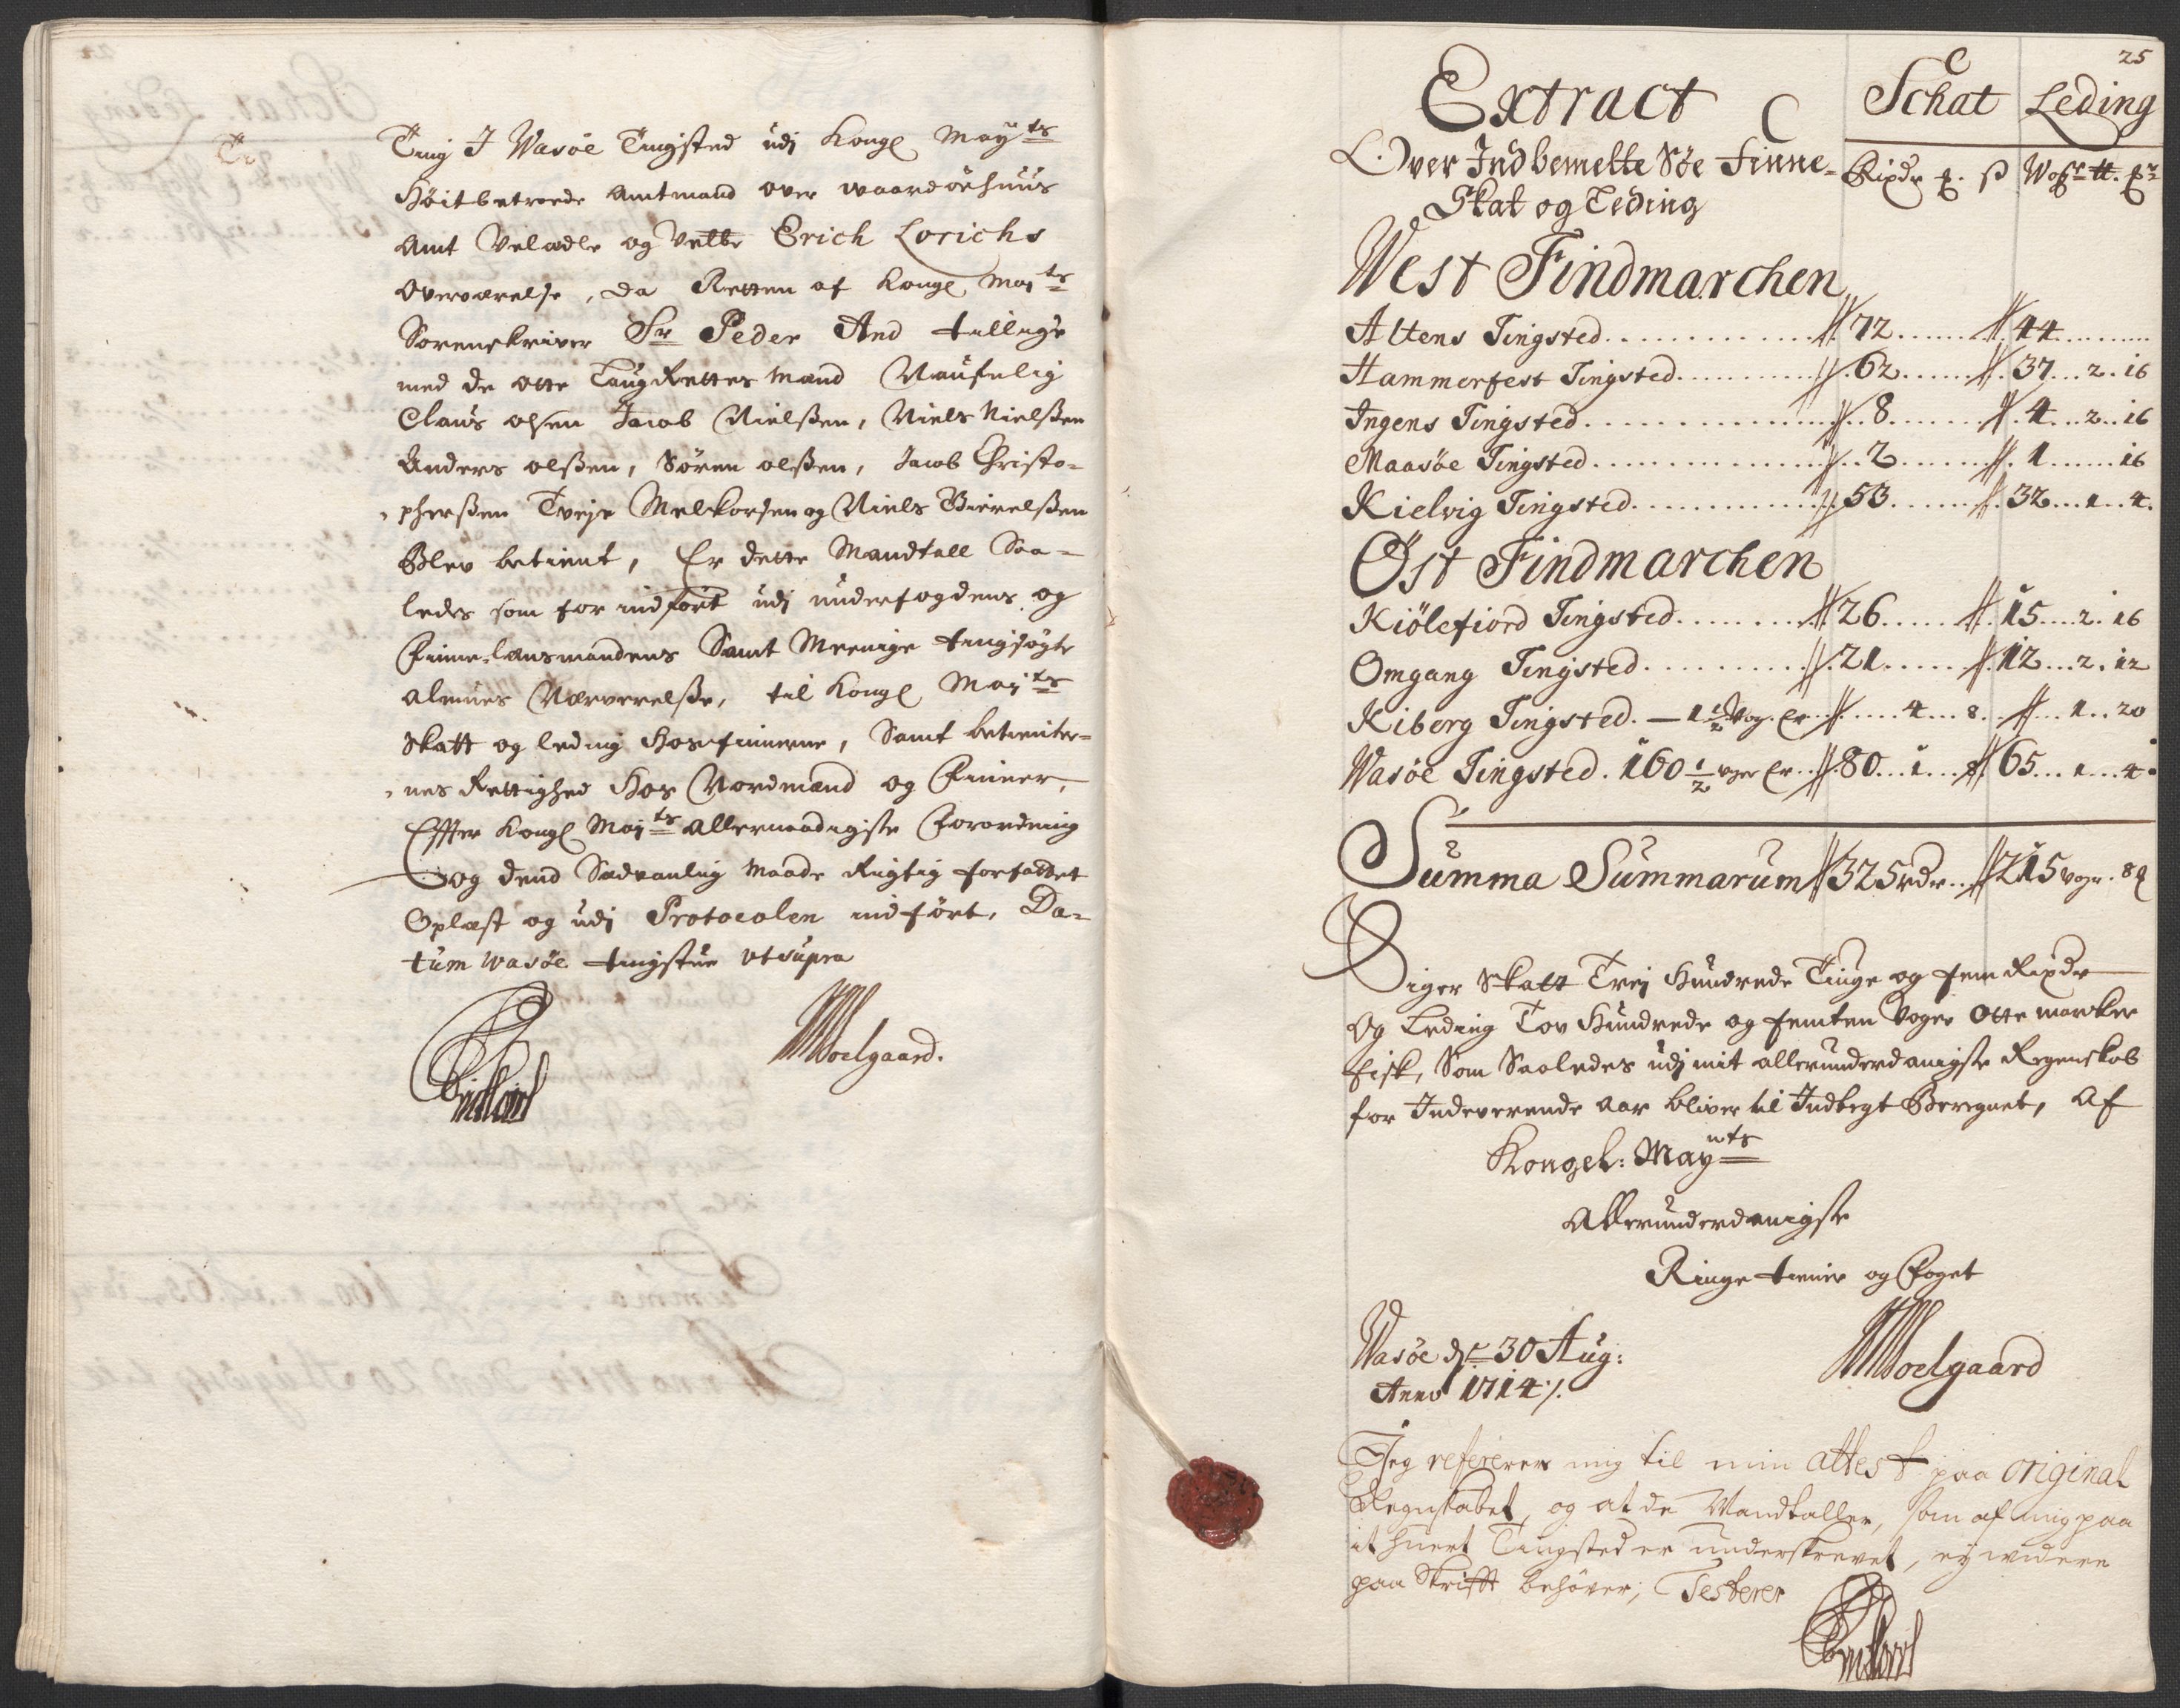 Ting I Wasöe Tingsted udj Kongl May<sup>ts</sup>
Höitbetroede Amtmand over Waardöehuus
Amt Velædle og Velbr Erich Lorichs
Overværelse, da Retten af Kongl May<sup>ts</sup>
Sorenskriver Sr Peder And tillige
med de otte Laug Rettes Mænd Naufnlig
Claus olsen Jacob Nielßen, Niels Nielßen
Anders olßen, Sören olßen, Jacob Christo-
pherßen Melkorsen og Niels
Blev betient, Er dette Mandtall Saa-
ledes som for indfört udj underfogdens og
Finne-Lænsmandens Samt Meenige tingsögte
Almues Nærverelße, til Kongl May<sup>ts</sup>
Skatt og leding Hos finnerne, Samt betienter-
nes Rettighed Hos Nordmænd og Finner,
Effter Kongl May<sup>ts</sup> Allernaadigste Forordning
og dend Sædvanlig Maade Rigtig forfattet
Oplæst og udj Protocolen indfört, Da-
tum Wasöe tingstue ut supra
Moelgaard.
25
Extract
Over Indbemelte Söe Finne-
Skat og Leding
Schat Leding
Rixdr ß Wogr
West Findmarchen
Altens Tingsted 72 44
Hammerfest Tingsted 62 37 2 16
Ingens Tingsted 8 4 2 16
Maasöe Tingsted 2 1 16
Kielvig Tingsted 53 32 1 4
Öst Findmarchen
Kiölefiord Tingsted 26 15 2 16
Omgang Tingsted 21 12 2 12
Kiberg Tingsted. — 1 1/2 Wog. Er 4 8 1 20
Wasöe Tingsted. 160 1/2 vger Er 80 1 8 65 1 4
Summa Summarum 325 rdr 215 vogr. 8
Siger Skatt Trej Hundrede Tiuge og fem Rixdr
Og Leding Tov Hundrede og femten Voger Otte marker
fisk, Som Saaledes udj mit allerunderdanigste Regenskab
for Indeverende Aar bliver til Indtegt Beregnet, Af
Kongel: May<sup>nts</sup>
Allerunderdanigste
Ringe tiener og Foget
Wasöe dn 30 Aug:
Anno 1714 ·/.
Moelgaard
Jeg refererer mig til min attest paa original
Regnskabet, og at de Mandtaller, som af mig paa
it huert Tingsted er underskrevet, ej widere
paa Skrifft behöver; Testerer